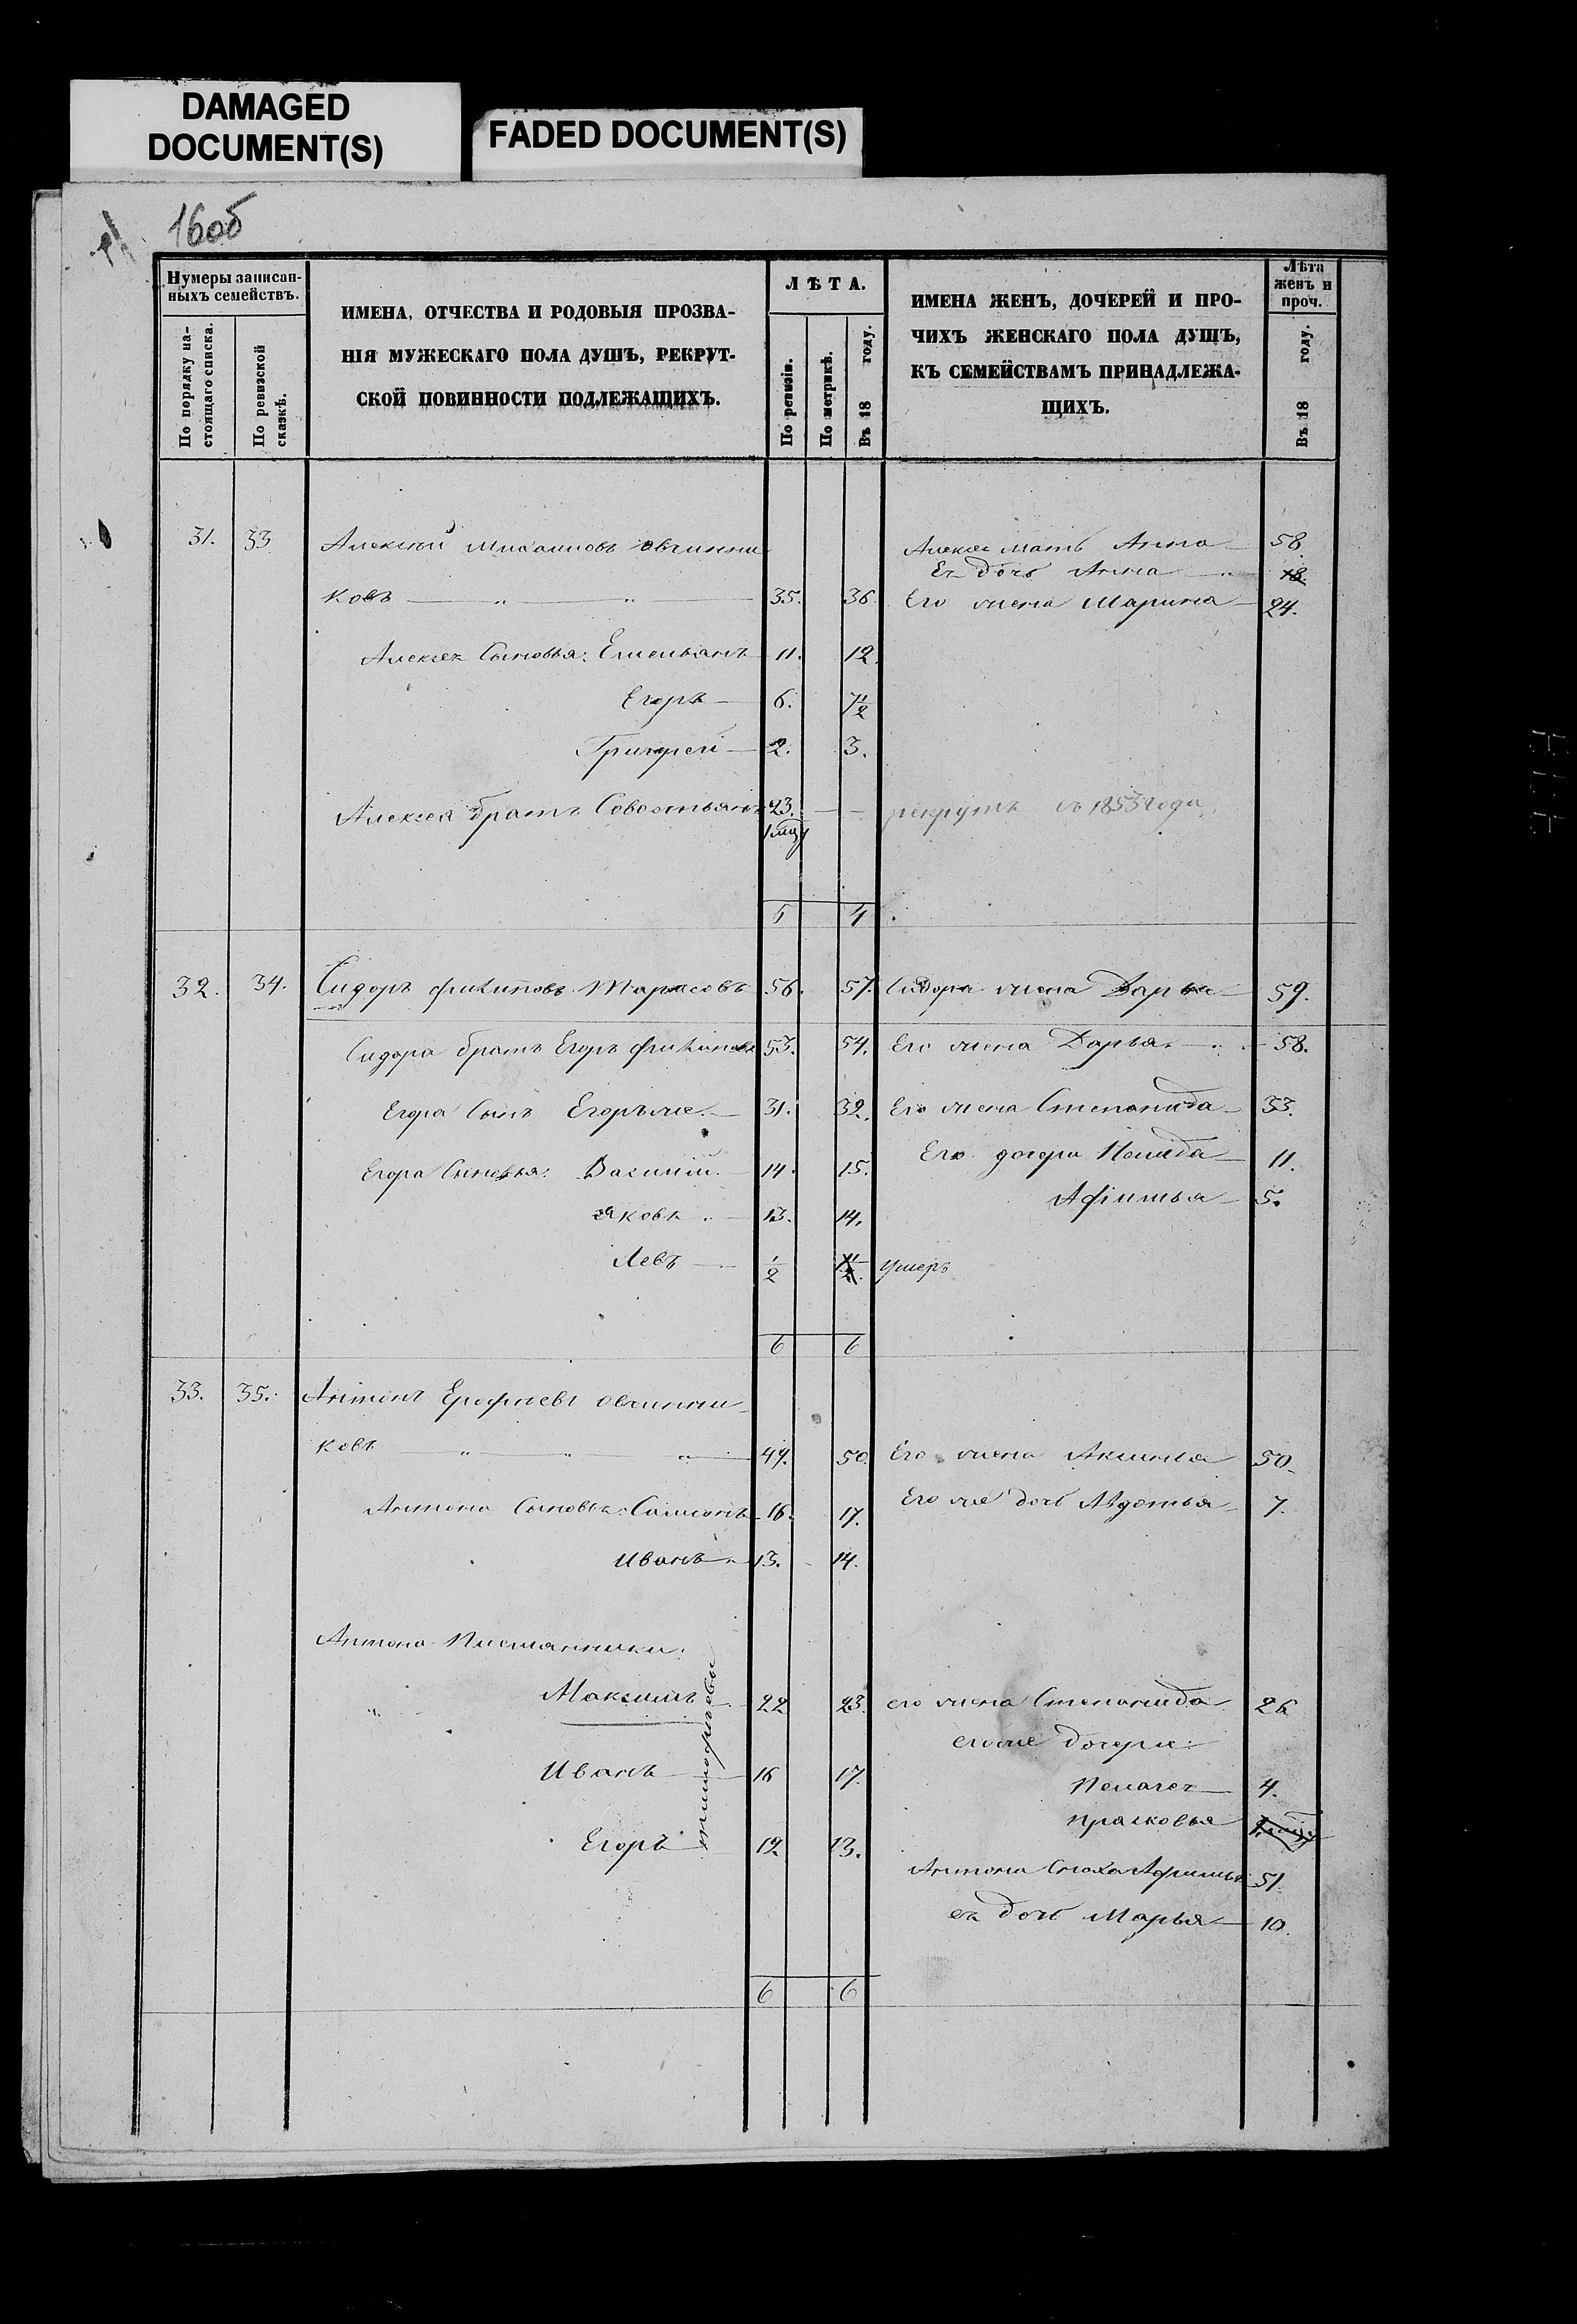 DAMAGED
DOCUMENT(S)
FADED DOCUMENT(S)
16об
Нумеры записан-
ныхъ семействъ.
По порядку на-
стоящаго списка.
По ревизской
сказкѣ.
ИМЕНА, ОТЧЕСТВА И РОДОВЫЯ ПРОЗВА-
НІЯ МУЖЕСКАГО ПОЛА ДУШЪ, РЕКРУТ-
СКОЙ ПОВИННОСТИ ПОДЛЕЖАЩИХЪ.
ЛѢТА.
По ревизіи.
По метрикѣ.
Въ 18 году.
ИМЕНА ЖЕНЪ, ДОЧЕРЕЙ И ПРО-
ЧИХЪ ЖЕНСКАГО ПОЛА ДУШЪ,
КЪ СЕМЕЙСТВАМЪ ПРИНАДЛЕЖА-
ЩИХЪ.
Лѣта
женъ и
проч.
Въ 18 году.
31. 33 Алексѣй Михаиловъ Овчинни Алексея мать Анна 58.
Ея дочь Анна 18.
ковъ 35. 36 Его жена Марина 24.
Алексея Сыновья: Емельянъ 11. 12.
Егоръ 6. 7 1/2
Григорей 2. 3.
Алексея братъ Совостьянъ 23. рекрутъ съ 1853 года
5 4
32. 34. Сидоръ Филиповъ Тарасовъ 56. 57. Сидора жена Дарья 59.
Сидора братъ Егоръ Филиповъ 53. 54. Его жена Дарья 58.
Егора Сынъ Егоръ же. 31. 32. Его жена Степанида 33.
Егора Сыновья: Василий 14. 15. Его дочери 11.
Яковъ 13. 14. Афимья 5.
Левъ 1/2 умеръ
6 6
33. 35. Антонъ Ерофѣевъ Овчинни-
ковъ 49. 50. Его жена Аксинья 50.
Антона Сыновья: Самсонъ 16. 17. Его же дочь Авдотья 7.
Иванъ 13. 14.
Антона Племянники:
Максимъ 22 23. его жена Степанида 26
его же дочери:
Иванъ 16 17. Пелагея 4.
Прасковья
Егоръ 12 13.
Тимофѣевы
Антона Сноха Афимья 51.
ея дочь Марья 10.
6 6